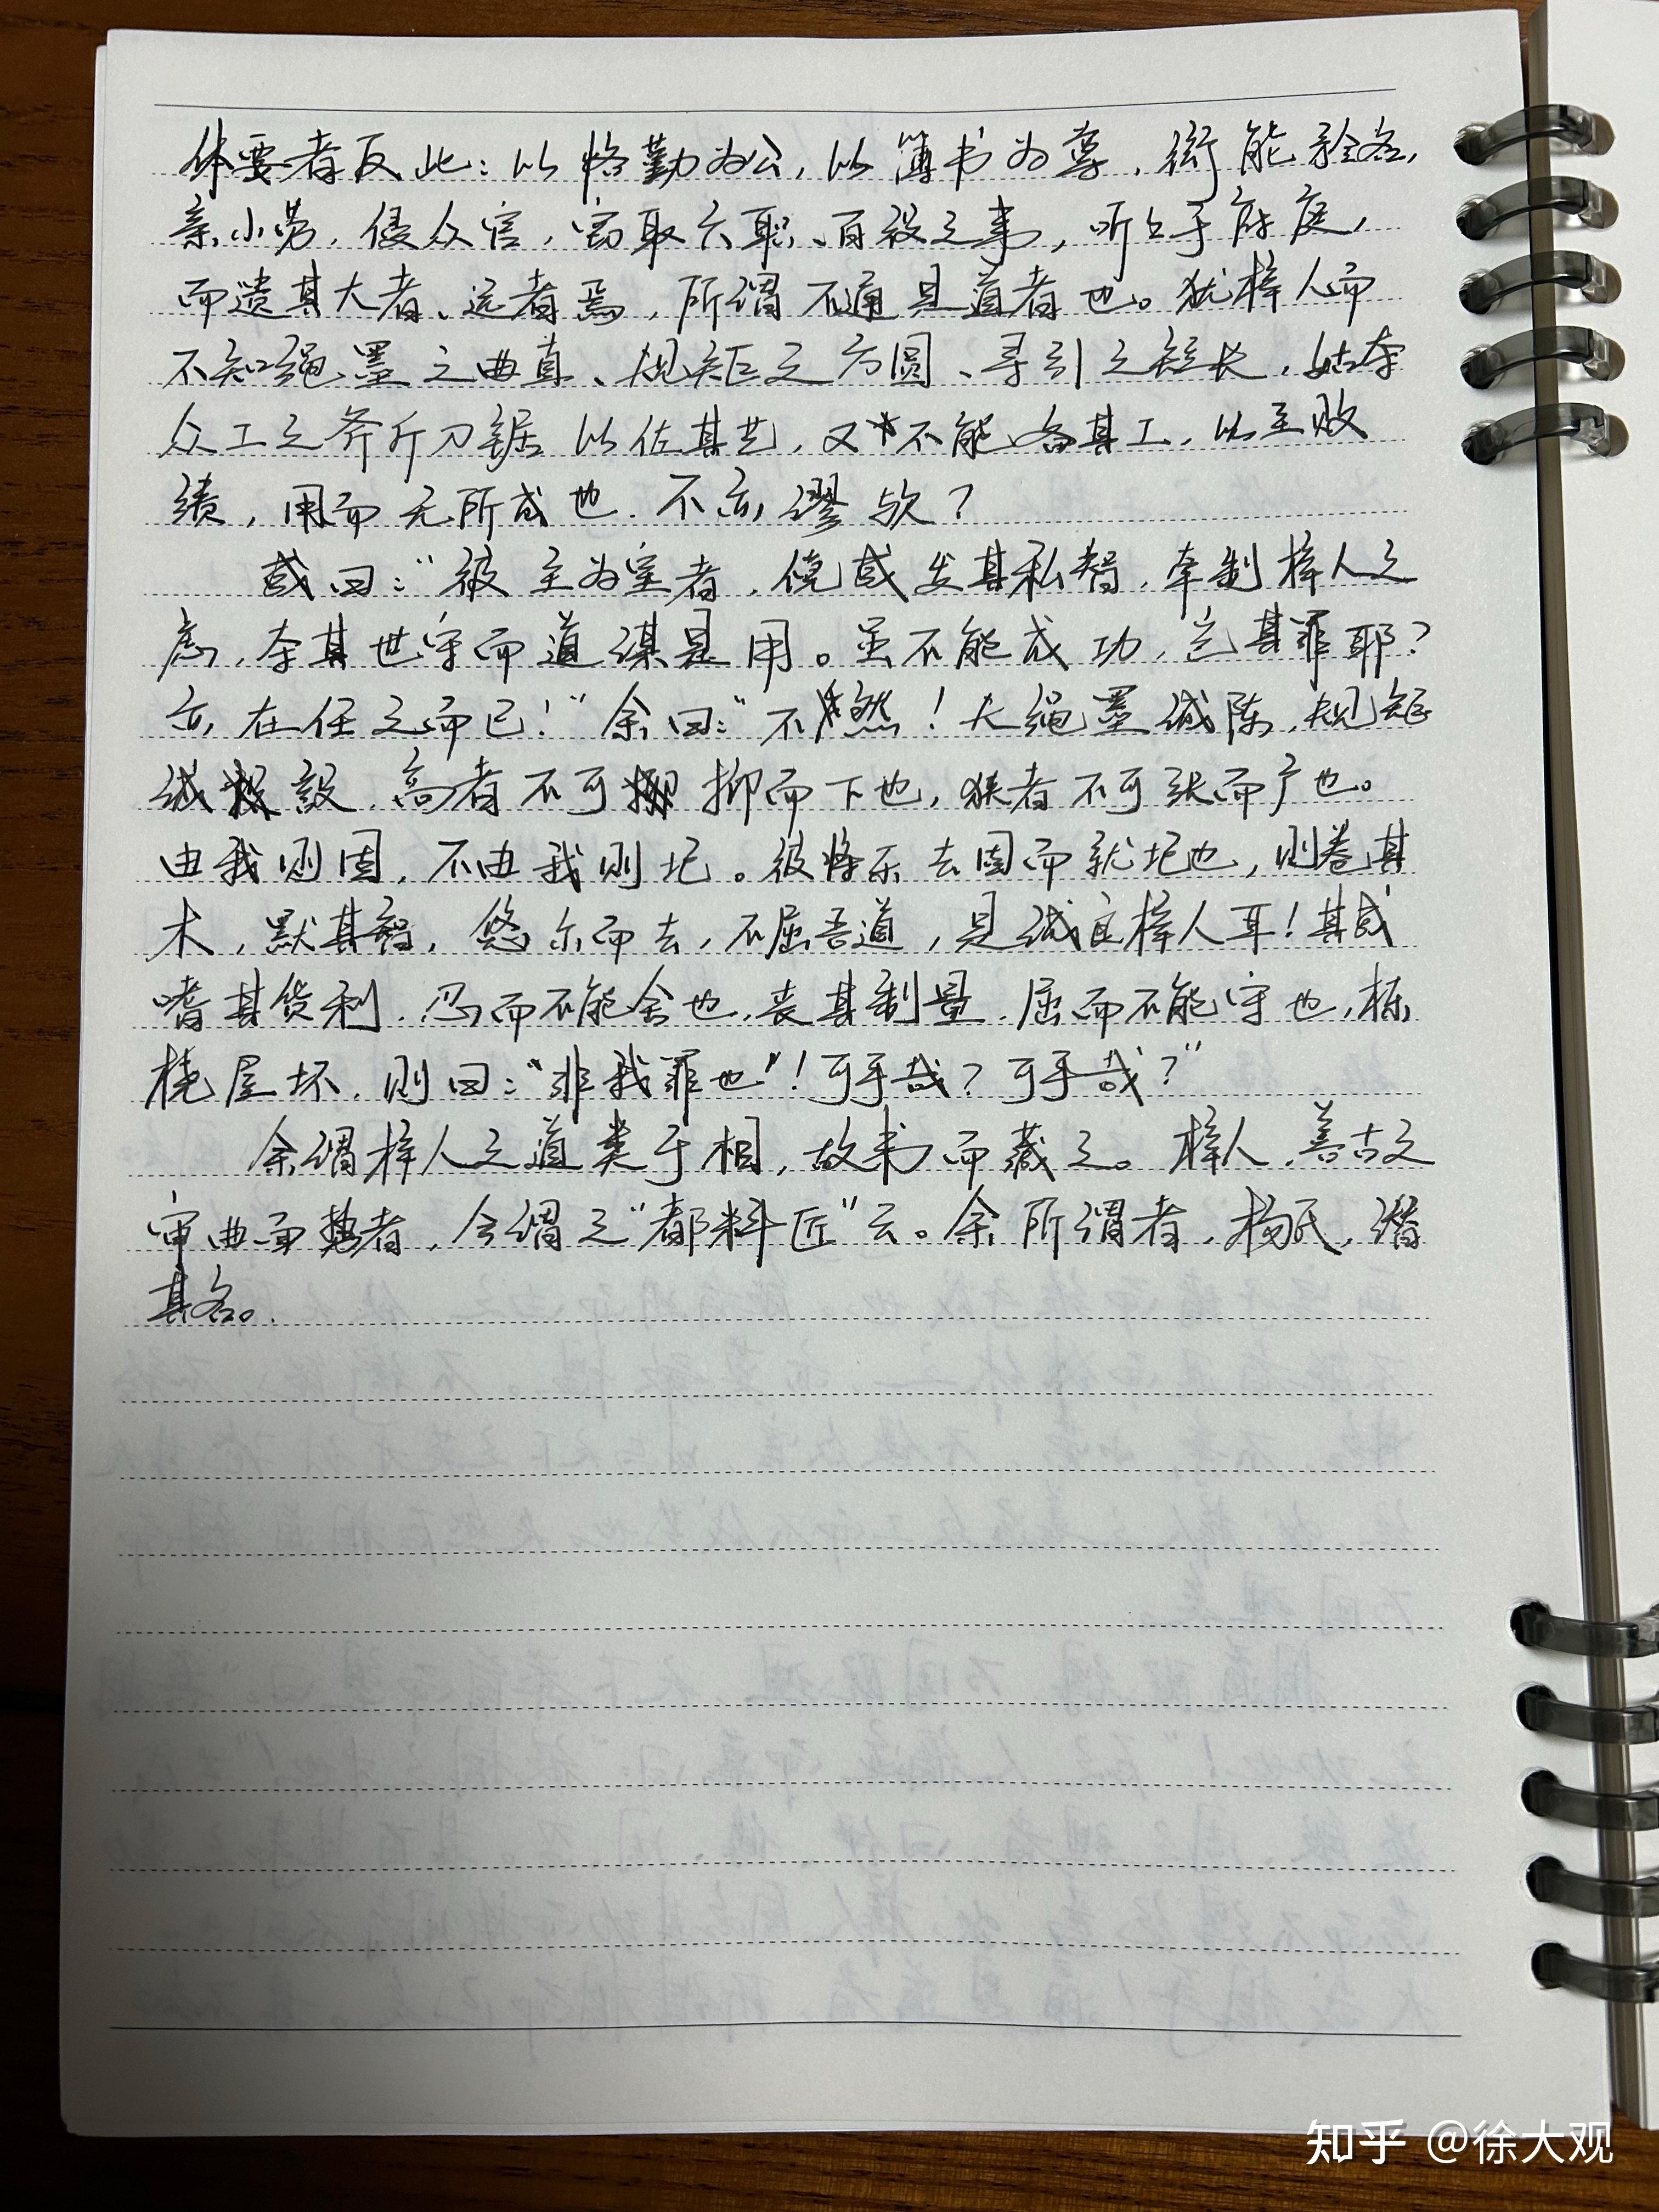 体要者反此：以恪勤为公，以簿书为尊，衒能矜名，
亲小劳，侵众官，窃取六职、百役之事，听听于府庭，
而遗其大者、远者焉，所谓不通是道者也。犹梓人而
不知绳墨之曲直、规矩之方圆、寻引之短长，姑夺
众工之斧斤刀锯以佐其艺，又不能备其工，以至败
绩，用而无所成也，不亦谬欤？
或曰：“彼主为室者，傥或发其私智，牵制梓人之
虑，夺其世守而道谋是用。虽不能成功，岂其罪耶？
亦在任之而已！”余曰：“不然！夫绳墨诚陈，规矩
诚设，高者不可抑而下也，狭者不可张而广也。
由我则固，不由我则圮。彼将乐去固而就圮也，则卷其
术，默其智，悠尔而去，不屈吾道，是诚良梓人耳！其或
嗜其货利，忍而不能舍也，丧其制量，屈而不能守也，栋
桡屋坏，则曰：“非我罪也”！可乎哉？可乎哉？”
余谓梓人之道类于相，故书而藏之。梓人，盖古之
审曲面势者，今谓之“都料匠”云。余所谓者，杨氏，潜
其名。
知乎 @徐大观